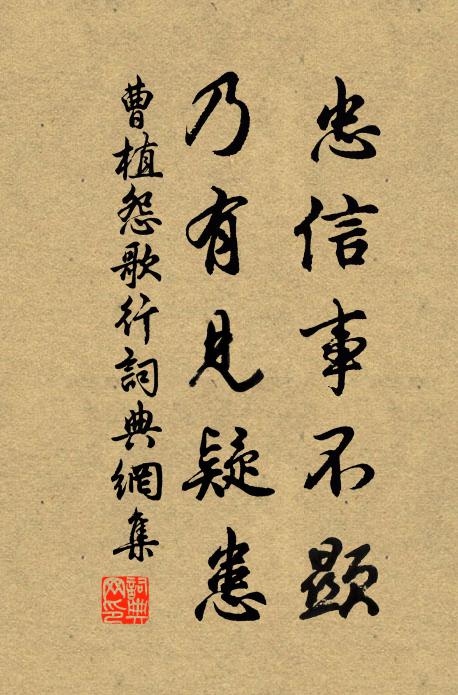 忠信事不顯
乃有見疑患
曹植怨歌行詞典網集
詞典网印